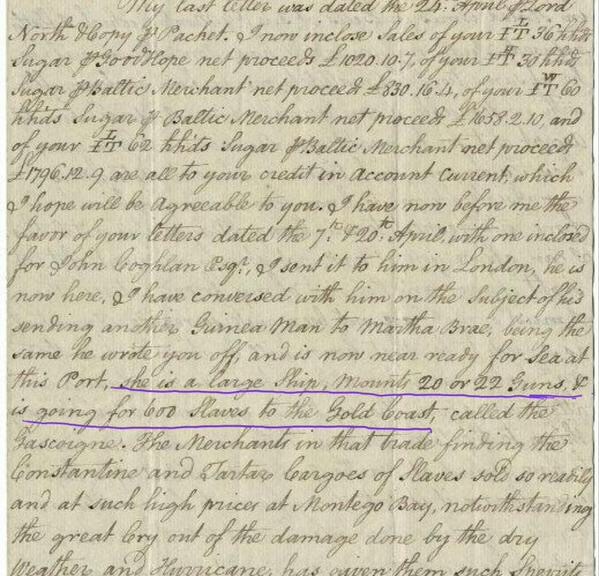 My last letter was dated the 24: April ⅌ Lord
North & Copy ⅌ Packet. I now inclose Sales of your IT L 36 hhds
Sugar ⅌ Good Hope net proceeds £1020.10.7, of your IT 30 hhds
Sugar ⅌ Baltic Merchant net proceeds £830.16.4, of your IT W 60
hhds Sugar ⅌ Baltic Merchant net proceeds £1658.2.10, and
of your IT L 62 hhds Sugar ⅌ Baltic Merchant net proceeds
£1796.12.9 are all to your credit in Account Current, which
I hope will be Agreeable to you. I have now before me the
favor of your letters dated the 7th & 20th April, with one inclosed
for John Coghlan Esqr, I sent it to him in London, he is
now here, & I have conversed with him on the Subject of his
sending another Guinea Man to Martha Brae, being the
same he wrote you off, and is now near ready for Sea at
this Port, she is a large Ship, Mounts 20 or 22 Guns, &
is going for 600 Slaves to the Gold Coast, called the
Gascoigne. The Merchants in that trade finding the
Constantine and Tartar Cargoes of Slaves sold so readily
and at such high prices at Montego Bay, notwithstanding
the great Cry out of the damage done by the dry
Weather and Hurricane, has given them such Spirits